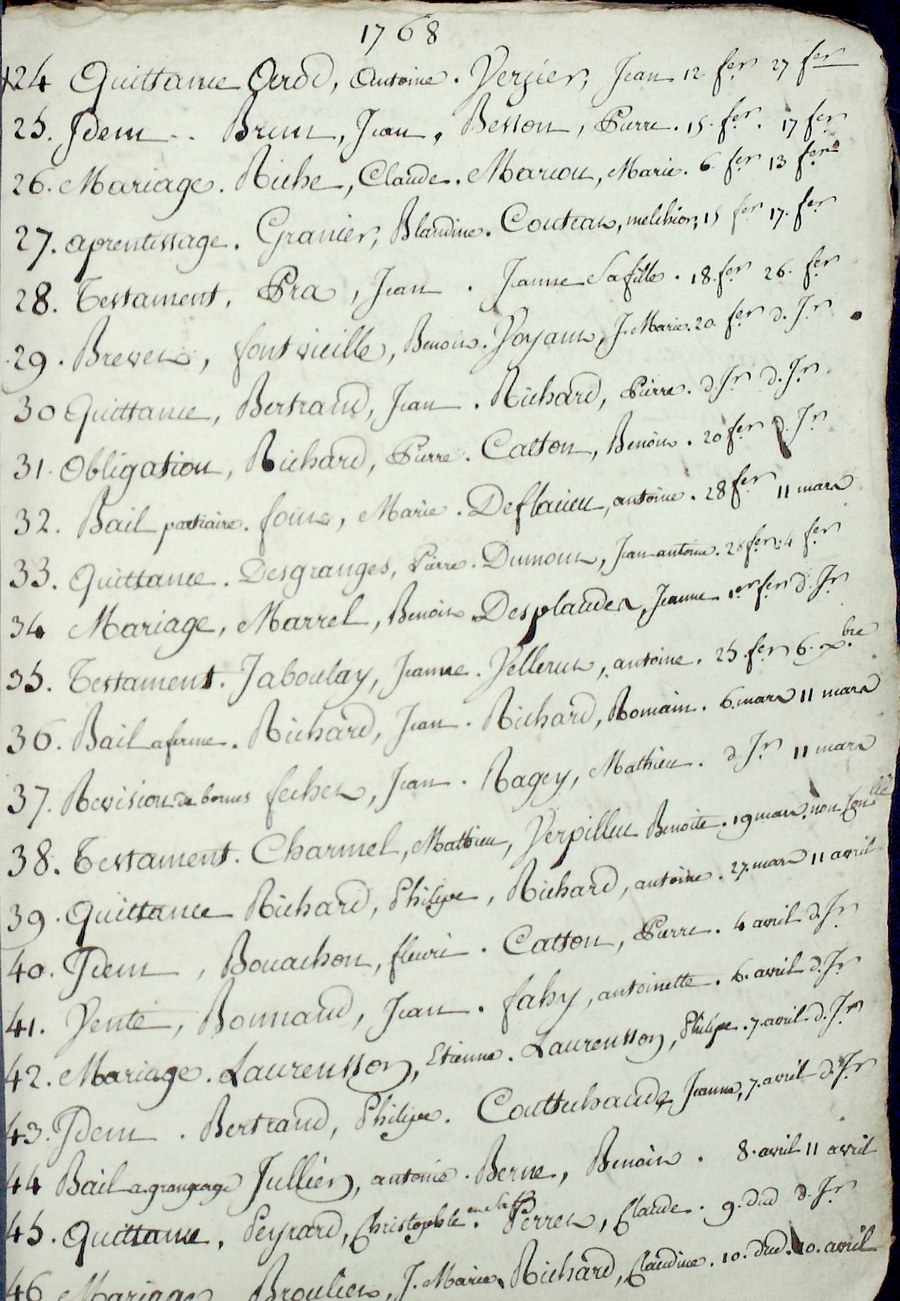 1768
24 Quittance Avod, Antoine. Verzier, Jean 12 fer 27 fer
25. Idem .. Brun, Jean, Besson, Pierre. 15. fer. 17 fer
26. Mariage. Riche, Claude. Marion, Marie. 6 fer 13 fer
27. aprentissage. Granier, Blandine. Couteau, melchior, 15 fer 17. fer
28. Testament, Pra, Jean. Jeanne Sa fille. 18. fer 26. fer
29. Brevet, fontvieille, Benoit. Voyant, J. Marie. 20 fer d. Jr
30 Quittance, Bertrand, Jean. Richard, Pierre. d. Jr d. Jr
31. Obligation, Richard, Pierre. Catton, Benoit. 20 fer d. Jr
32. Bail partiaire. Marie. Deflacieu, antoine. 28 fer 11 mars
33. Quittance. Desgranges, Pierre. Dumont, Jean antoine. fer 4 fer
34 Mariage, Marrel, Benoit Desplaudes, Jeanne 1er fer d. Jr
35. Testament. Jaboulay, Jeanne. Vellerut, antoine. 25. fer 6. xbre
36. Bail a ferme. Richard, Jean. Richard, Romain. 6. mars 11 mars
37. Revision de bornes fechet, Jean. Ragey, Mathieu. d. Jr 11 mars
38. Testament. Charmet, Mathieu, Verpilleu Benoite. 19 mars. non Conllé
39. Quittance Richard, Philipe, Richard, antoine. 27. mars 11 avril
40. Idem, Bouachon, fleuri. Catton, Pierre. 4 avril d. Jr
41. Vente, Bonnand, Jean. fahy, antoinette. 6. avril d. Jr
42. Mariage. Laurensson, Etienne. Laurensson, Philipe. 7. avril d. Jr
43. Idem. Bertrand, Philipe. Coutuchaude, Jeanne, 7. avril d. Jr
44 Bail a grangeage Jullien, antoine. Berne, Benoit. 8. avril 11 avril
45. Quittance, Peyrard, Christophle. Perret, Claude. 9. dud d. Jr
46 Mariage Broulier, J. Marie, Richard, Claudine. 10. dud. 20. avril